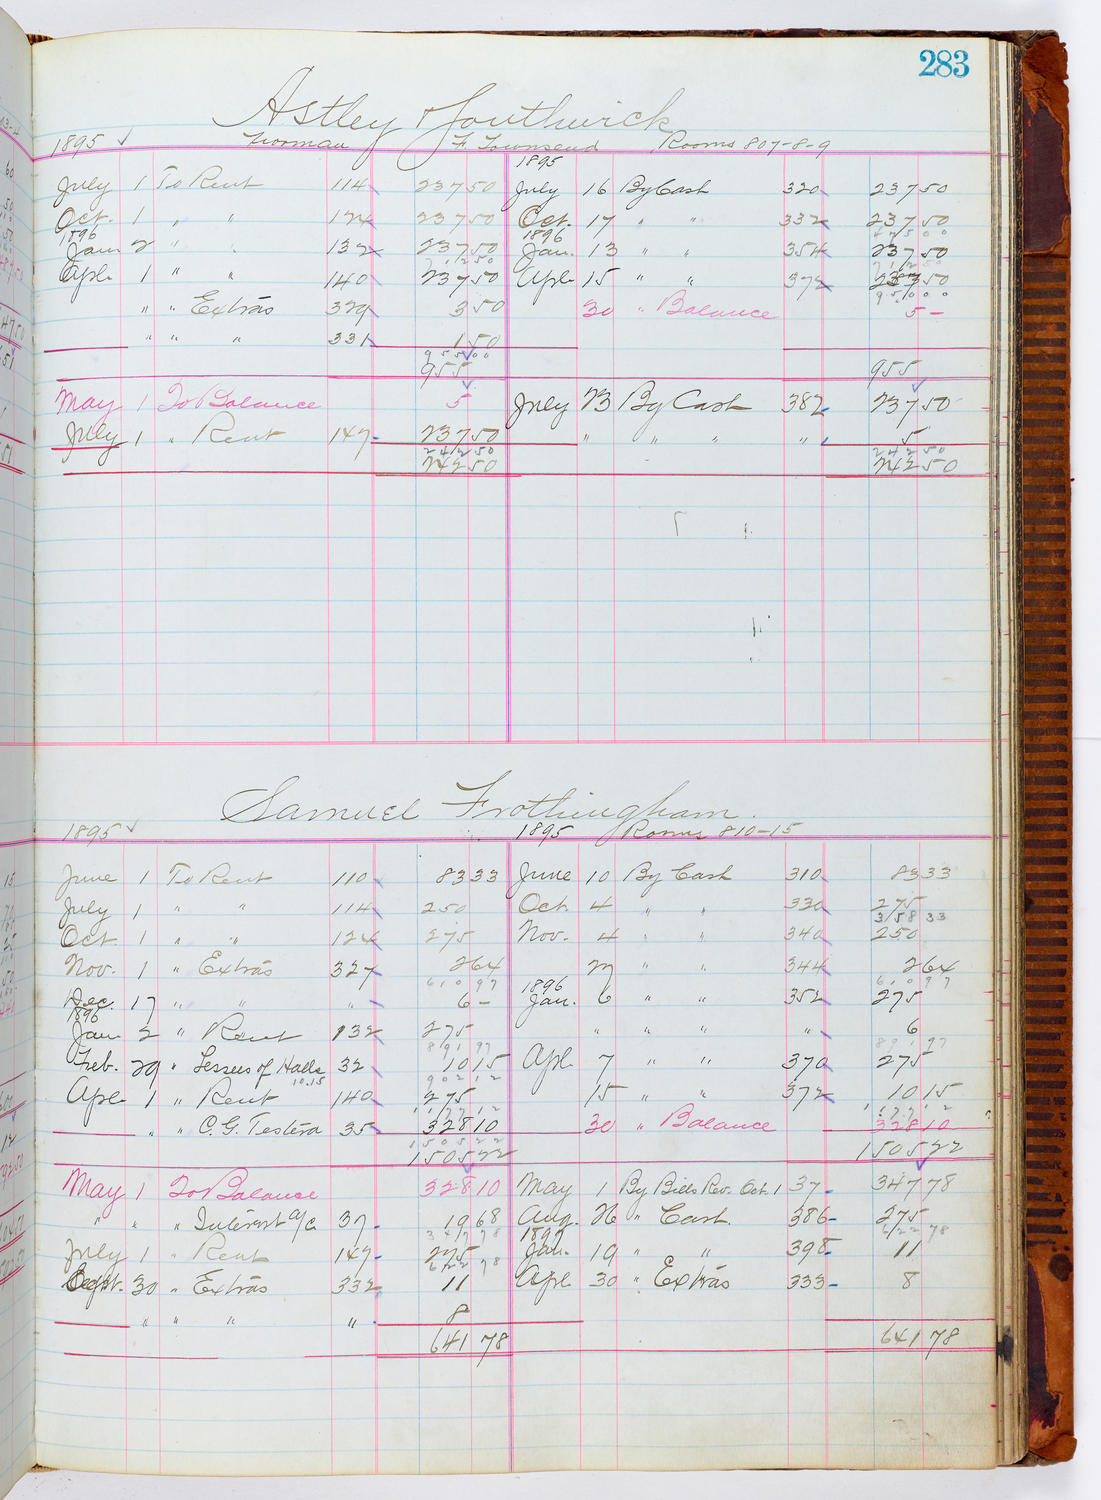 283
Astley & Southwick
1895 Trosman F. Townsend Rooms 807-8-9
1895
July 1 To Rent 114 237 50 July 16 By Cash 320 237 50
Oct. 1 " " 124 237 50 Oct. 17 " " 332 237 50
1896 1896 475 00
Jan 2 " " 132 237 50 Jan. 13 " " 354 237 50
712 50 712 50
Apl. 1 " " 140 237 50 Apl. 15 " " 372 237 50
950 00
" " Extras 329 3 50 30 " Balance 5 –
" " " 331 1 50
955 00
955 955
May 1 To Balance 5 July 23 By Cash 382 237 50
July 1 " Rent 147 237 50 " " " " 5
242 50 242 50
242 50 242 50
Samuel Frothingham
1895 1895 Rooms 810-15
June 1 To Rent 110 83 33 June 10 By Cash 310 83 33
July 1 " " 114 250 Oct. 4 " " 330 275
358 33
Oct 1 " " 124 275 Nov. 4 " " 340 250
Nov. 1 " Extras 327 2 64 27 " " 344 2 64
610 97 1896 610 97
Dec. 17 " " " 6 – Jan. 6 " " 352 275
1896
Jan 2 " Rent 132 275 " " " " 6
891 97 891 97
Feb. 29 " Lessees of Halls 32 10 15 Apl 7 " " 370 275
10.15 902 12
Apl. 1 " Rent 140 275 15 " " 372 10 15
1177 12 1177 12
" " C. G. Testera 35 328 10 30 " Balance 328 10
1505 22
1505 22 1505 22
May 1 To Balance 328 10 May 1 By Bills Rev. Oct. 1 37 347 78
" " " Interest a/c 37 19 68 Aug. 26 " Cash 386 275
347 78 1897 622 78
July 1 " Rent 147 275 Jan. 19 " " 398 11
622 78
Sept. 30 " Extras 332 11 Apl. 30 " Extras 333 8
" " " " 8
641 78 641 78